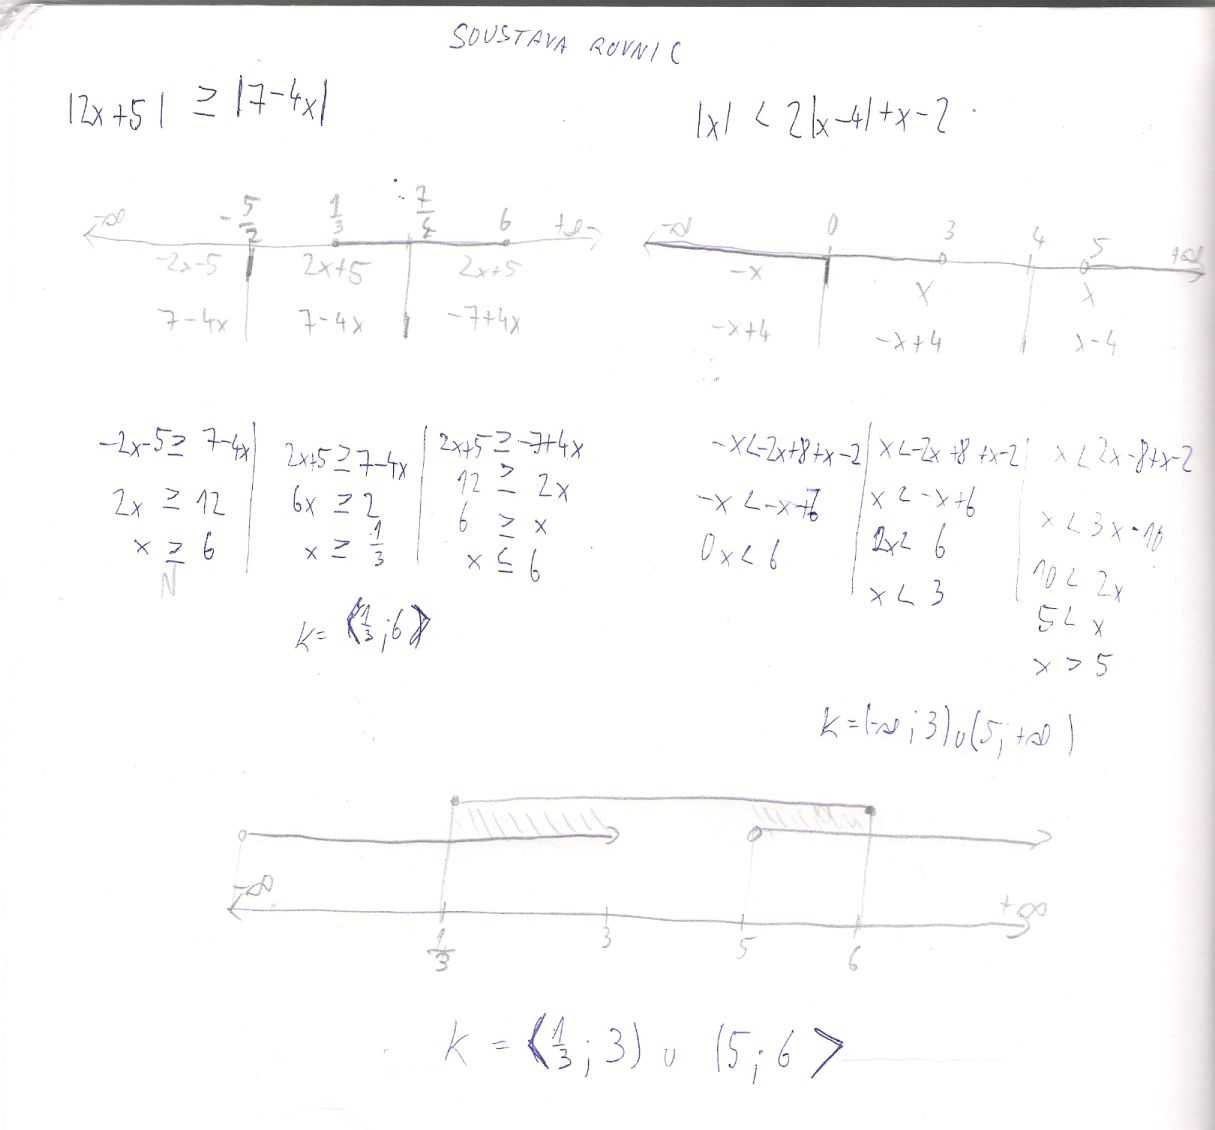 SOUSTAVA ROVNIC
|2x+5| ≥ |7-4x|
|x| < 2|x-4|+x-2
-∞ -5/2 1/3 7/4 6 +∞
-2x-5 2x+5 2x+5
7-4x 7-4x -7+4x
-∞ 0 3 4 5 +∞
-x x x
-x+4 -x+4 x-4
-2x-5≥ 7-4x
2x ≥ 12
x ≥ 6
N
2x+5≥7-4x
6x ≥ 2
x ≥ 1/3
2x+5≥-7+4x
12 ≥ 2x
6 ≥ x
x ≤ 6
K= ⟨1/3;6⟩
-x<-2x+8+x-2
-x <-x+6
0x< 6
x<-2x+8+x-2
x < -x+6
2x< 6
x < 3
x<2x-8+x-2
x < 3x-10
10 < 2x
5< x
x > 5
K=(-∞;3)∪(5;+∞)
-∞ +∞
1/3 3 5 6
K = ⟨1/3;3) ∪ (5;6⟩